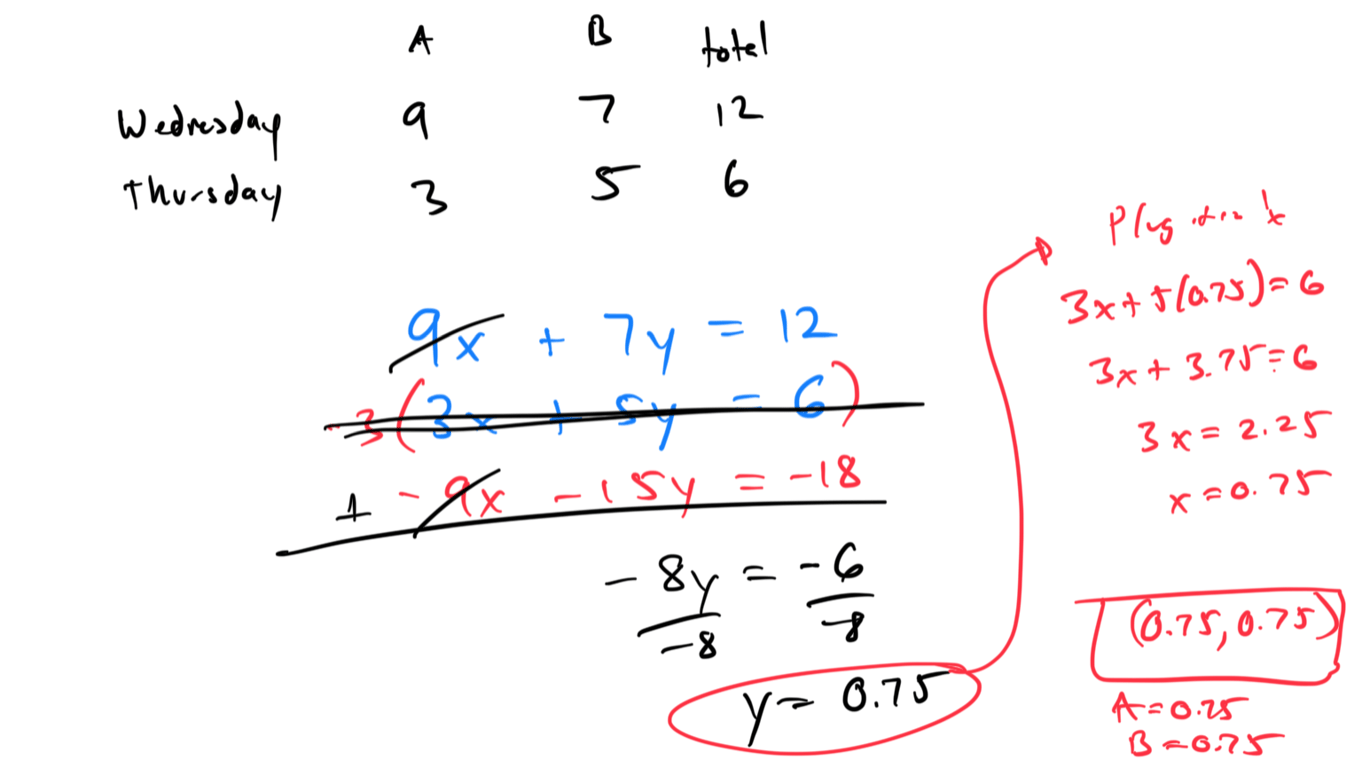 A B total
Wednesday 9 7 12
Thursday 3 5 6
9x + 7y = 12
-3(3x + 5y = 6)
+ -9x -15y = -18
-8y = -6
-8 -8
y = 0.75
Plug
3x + 5(0.75) = 6
3x + 3.75 = 6
3x = 2.25
x = 0.75
(0.75, 0.75)
A = 0.75
B = 0.75